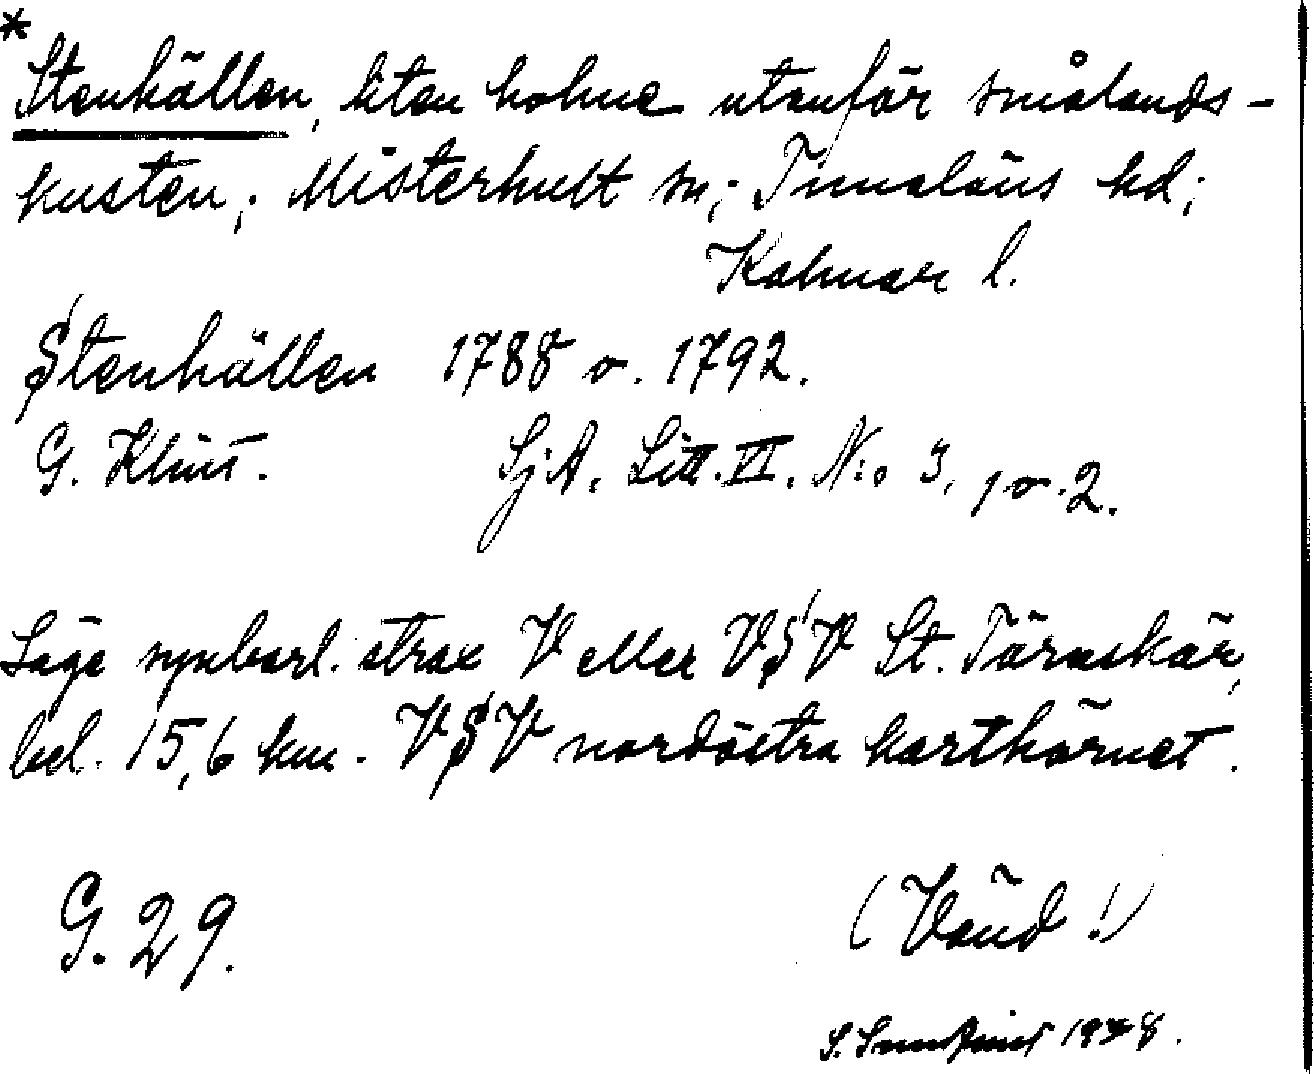 *
Stenhällen, liten holme utanför smålands-
kusten; Misterhult sn; Tunaläns hd;
Kalmar l.
Stenhällen 1788 o. 1792.
G. Klint. SjA. Litt. VI. N:o 3, 1 o. 2.
Läge symbol. strax V eller VSV St. Tärnskär,
bel. 15,6 km. VSV nordöstra karthörnet.
G. 29. (Vänd!)
S. 1948.